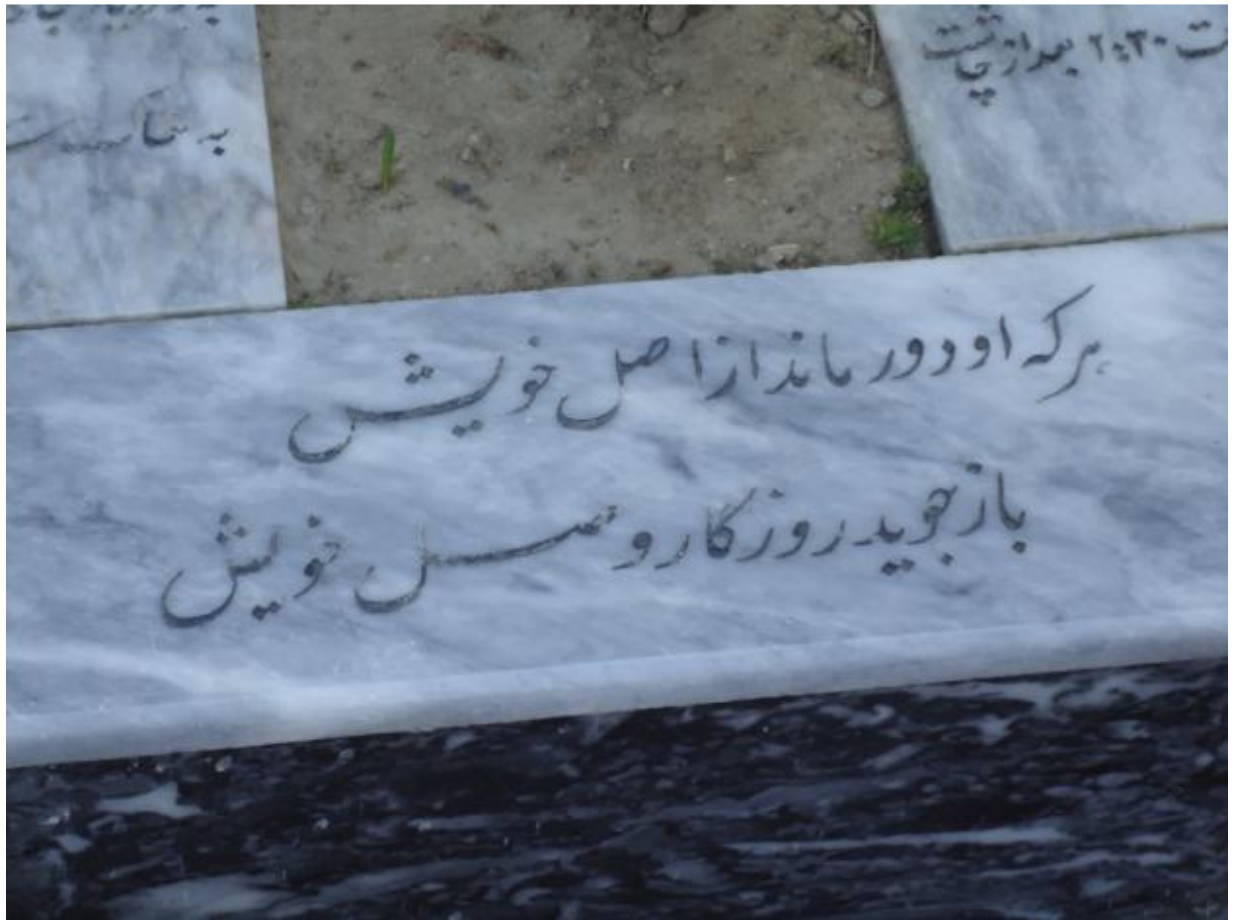 ت ۲:۳۰ بعد از چاشت
هر که او دور ماند از اصل خویش
باز جوید روزگار وصل خویش